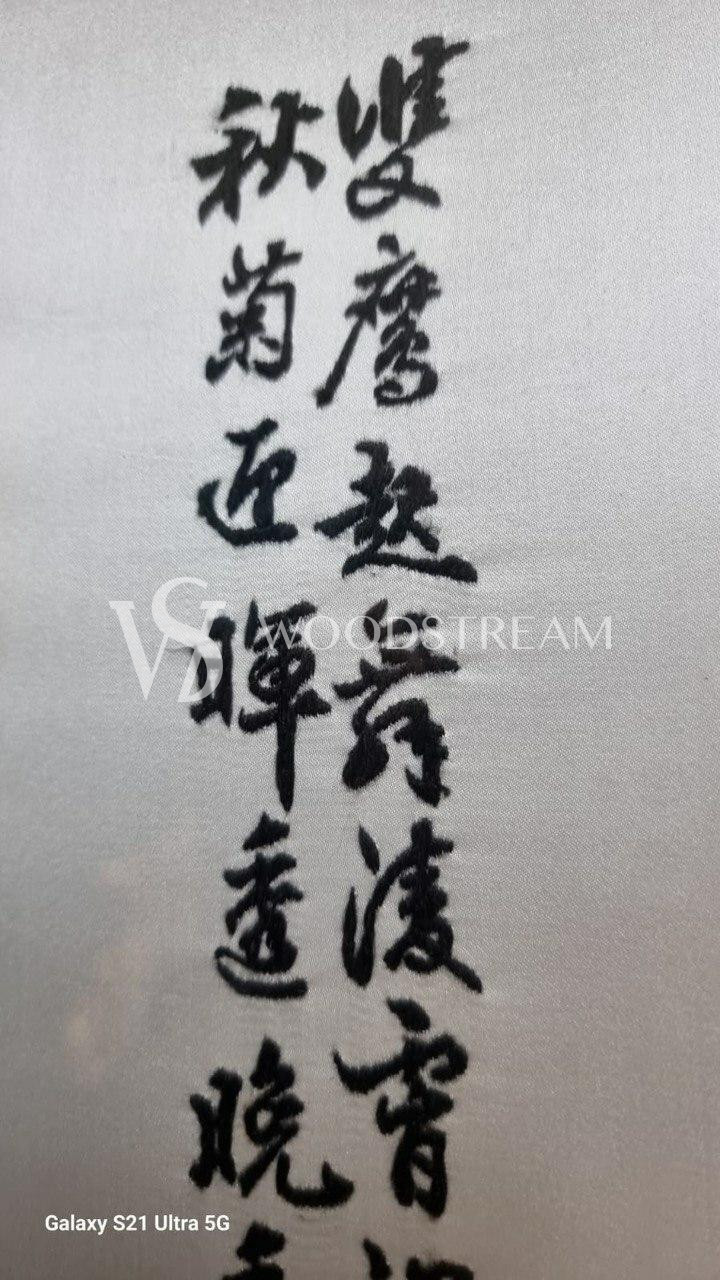 雙鷹起舞凌霄
秋菊迎暉透晚
WOODSTREAM
Galaxy S21 Ultra 5G